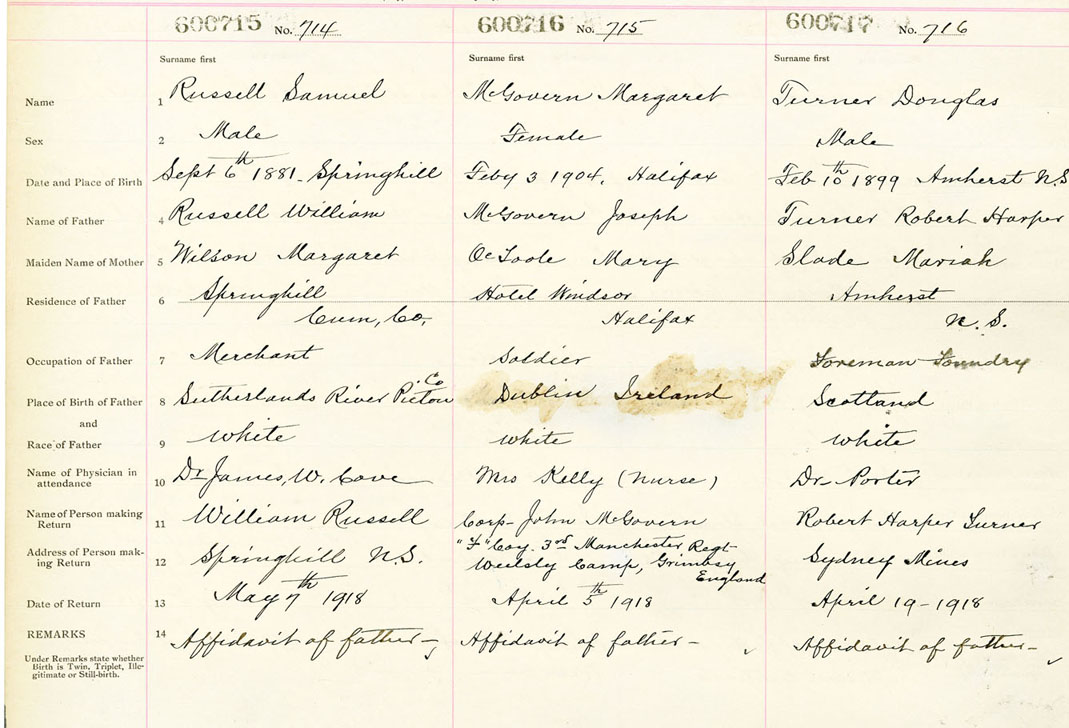 600715 No. 714 600716 No. 715 600717 No. 716
Surname first Surname first Surname first
Name 1 Russell Samuel McGovern Margaret Turner Douglas
Sex 2 Male Female Male
Date and Place of Birth 3 Sept 6th 1881 - Springhill Feby 3 1904, Halifax Feb 10th 1899 Amherst N.S
Name of Father 4 Russell William McGovern Joseph Turner Robert Harper
Maiden Name of Mother 5 Wilson Margaret O'Toole Mary Slade Mariah
Residence of Father 6 Springhill Hotel Windsor Amherst
Cum, Co, Halifax N. S.
Occupation of Father 7 Merchant Soldier Foreman Foundry
Place of Birth of Father 8 Sutherlands River Pictou Co Dublin Ireland Scotland
and
Race of Father 9 White White White
Name of Physician in
attendance 10 Dr James, W. Cove Mrs Kelly (Nurse) Dr- Porter
Name of Person making
Return 11 William Russell Corp- John McGovern Robert Harper Turner
Address of Person mak-
ing Return 12 Springhill N.S. "F" Coy. 3rd Manchester Regt-
Camp, Grimsby
England Sydney Mines
Date of Return 13 May 7th 1918 April 5th 1918 April 19-1918
REMARKS 14 Affidavit of father- Affidavit of father- Affidavit of father-
Under Remarks state whether
Birth is Twin, Triplet, Ille-
gitimate or Still-birth.